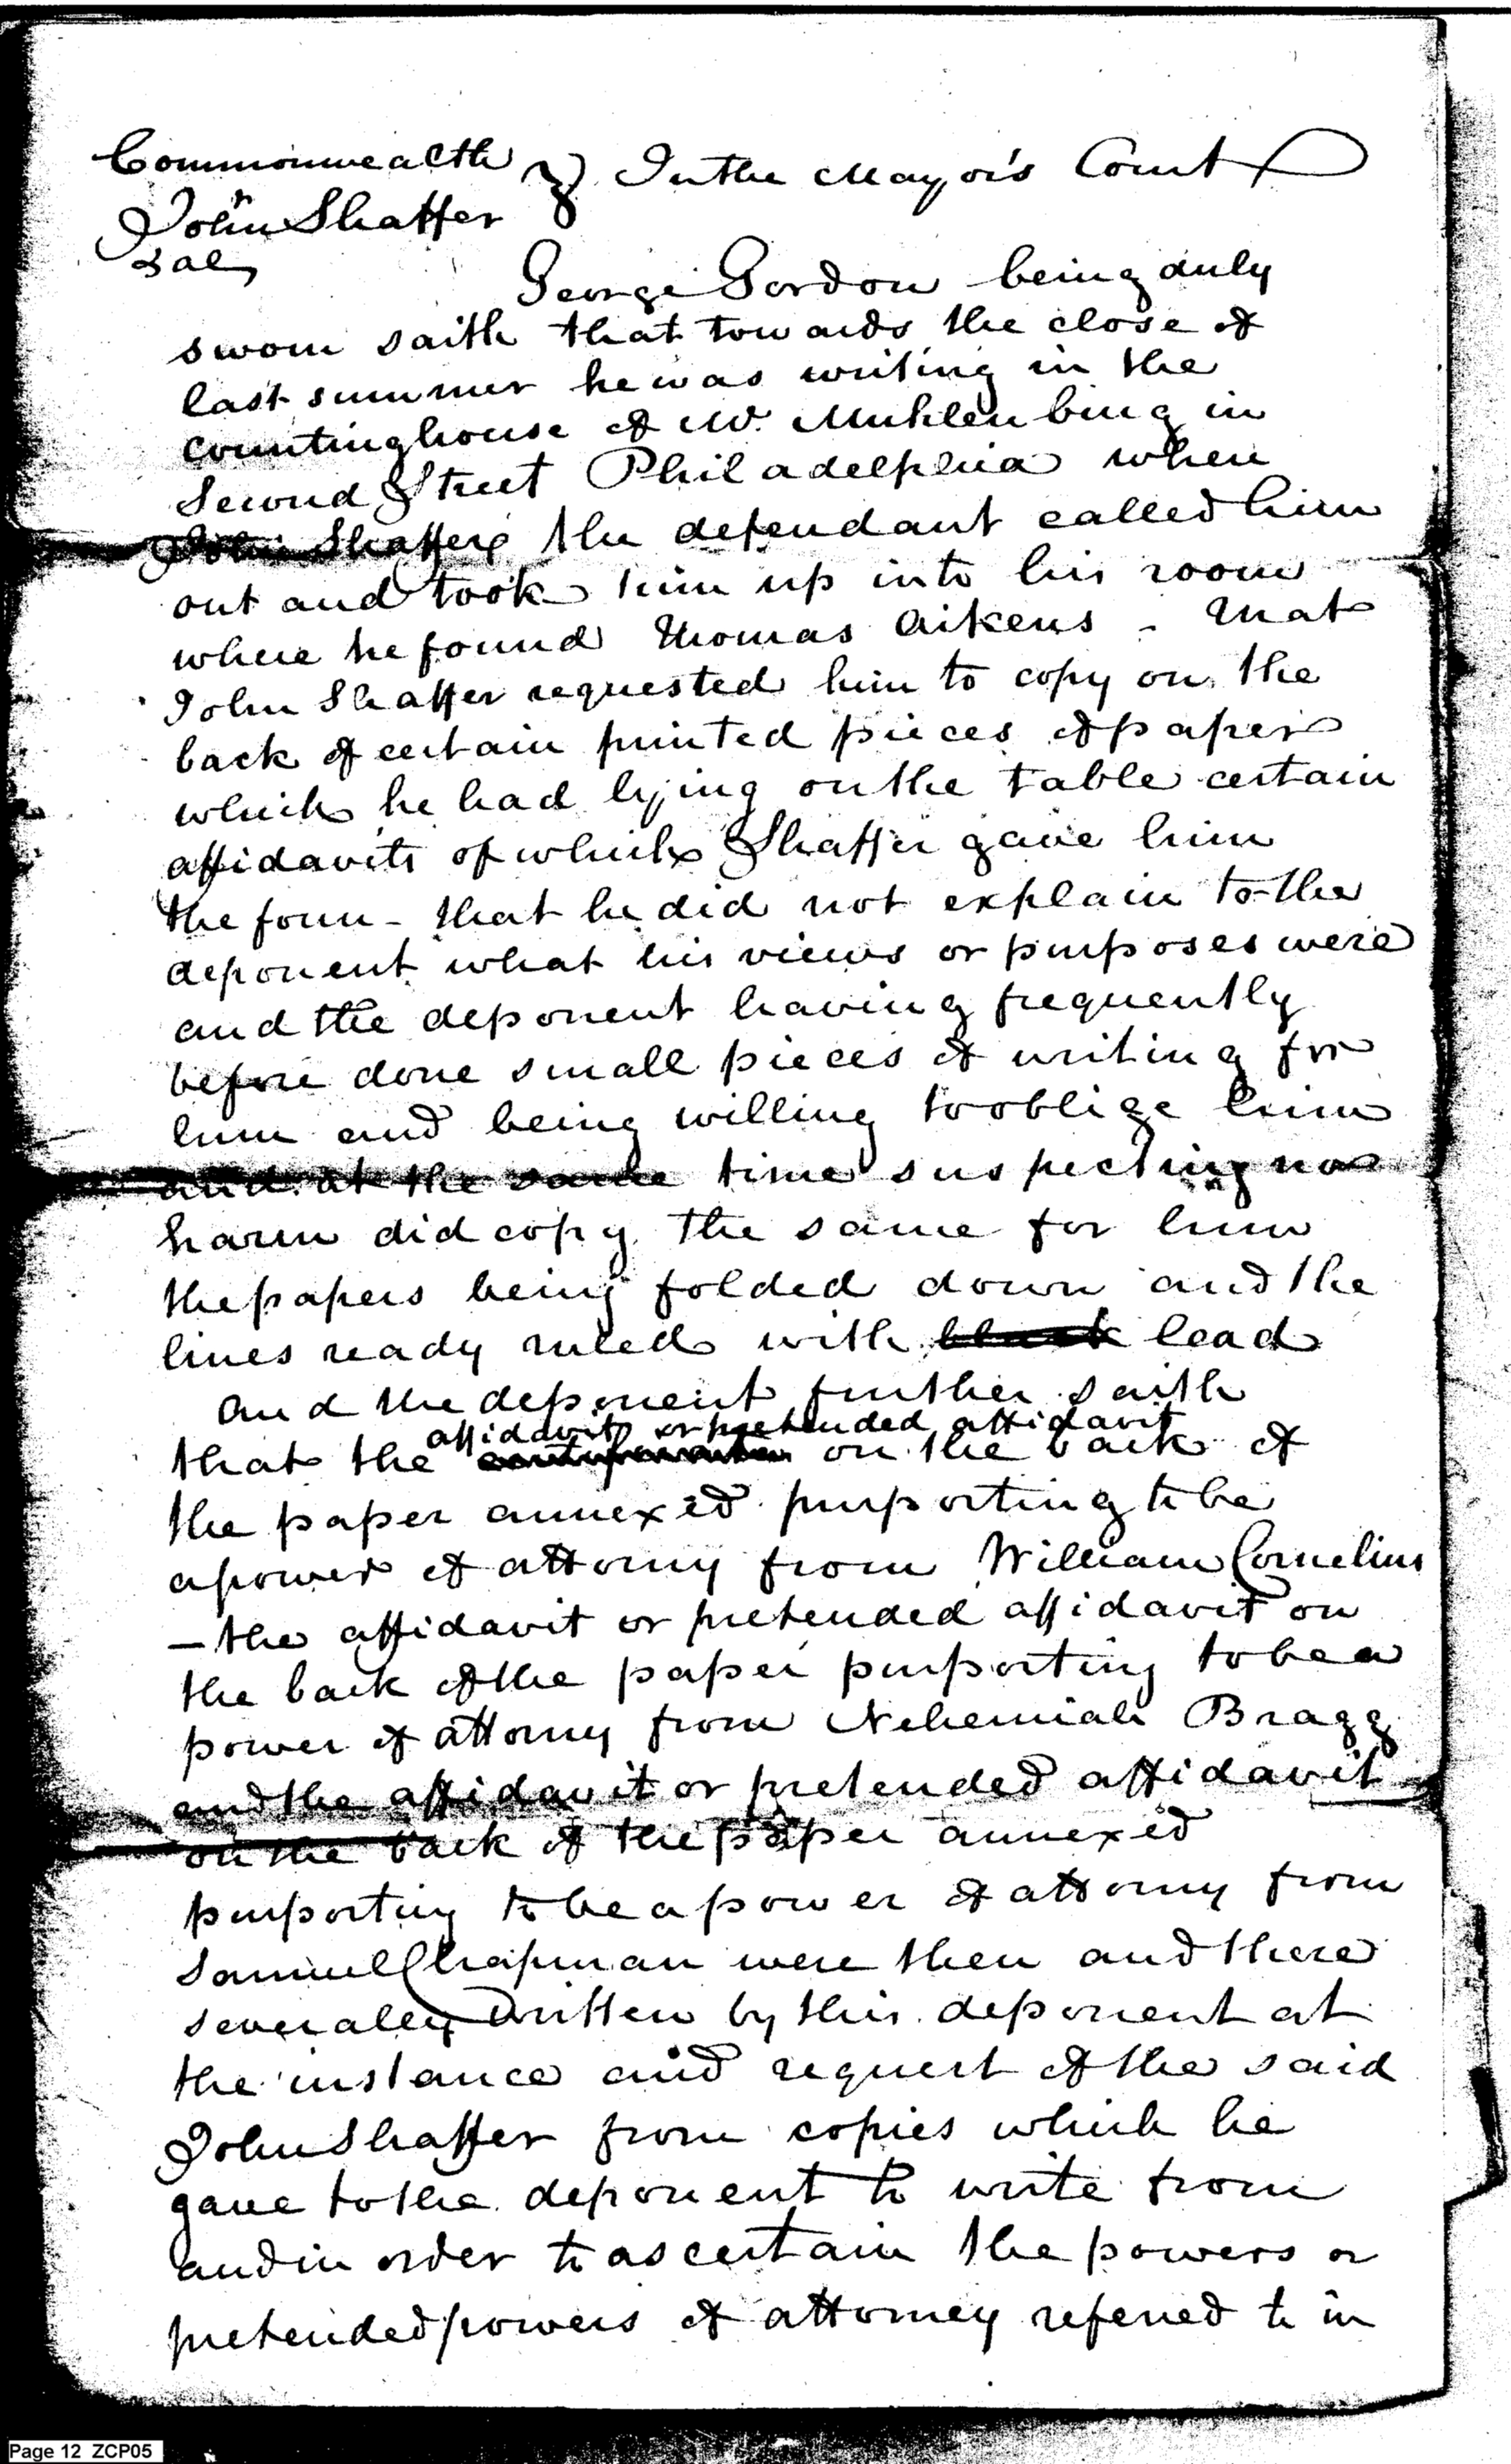 Commonwealth
v
In the Mayor's Court
John Shaffer
& al
George Gordon being duly
sworn saith that towards the close of
last summer he was writing in the
countinghouse of Mr. Muhlenberg in
Second Street Philadelphia when
John Shaffer the defendant called him
out and took him up into his room
where he found Thomas Aikens - that
John Shaffer requested him to copy on the
back of certain printed pieces of paper
which he had lying on the table certain
affidavits of which Shaffer gave him
the form - that he did not explain to the
deponent what his views or purposes were
and the deponent having frequently
before done small pieces of writing for
him and being willing to oblige him
and at the same time suspecting no
harm did copy the same for him
the papers being folded down and the
lines ready ruled with black lead
and the deponent further saith
affidavit or pretended affidavit
that the on the back of
the paper annexed purporting to be
a power of attorny from William Cornelius
- the affidavit or pretended affidavit on
the back of the paper purporting to be a
power of attorny from Nehemiah Bragg
and the affidavit or pretended affidavit
on the back of the paper annexed
purporting to be a power of attorny from
Samuel Chapman were then and there
severally written by this deponent at
the instance and request of the said
John Shaffer from copies which he
gave to the deponent to write from
and in order to ascertain the powers or
pretended powers of attorney referred to in
Page 12 ZCP05